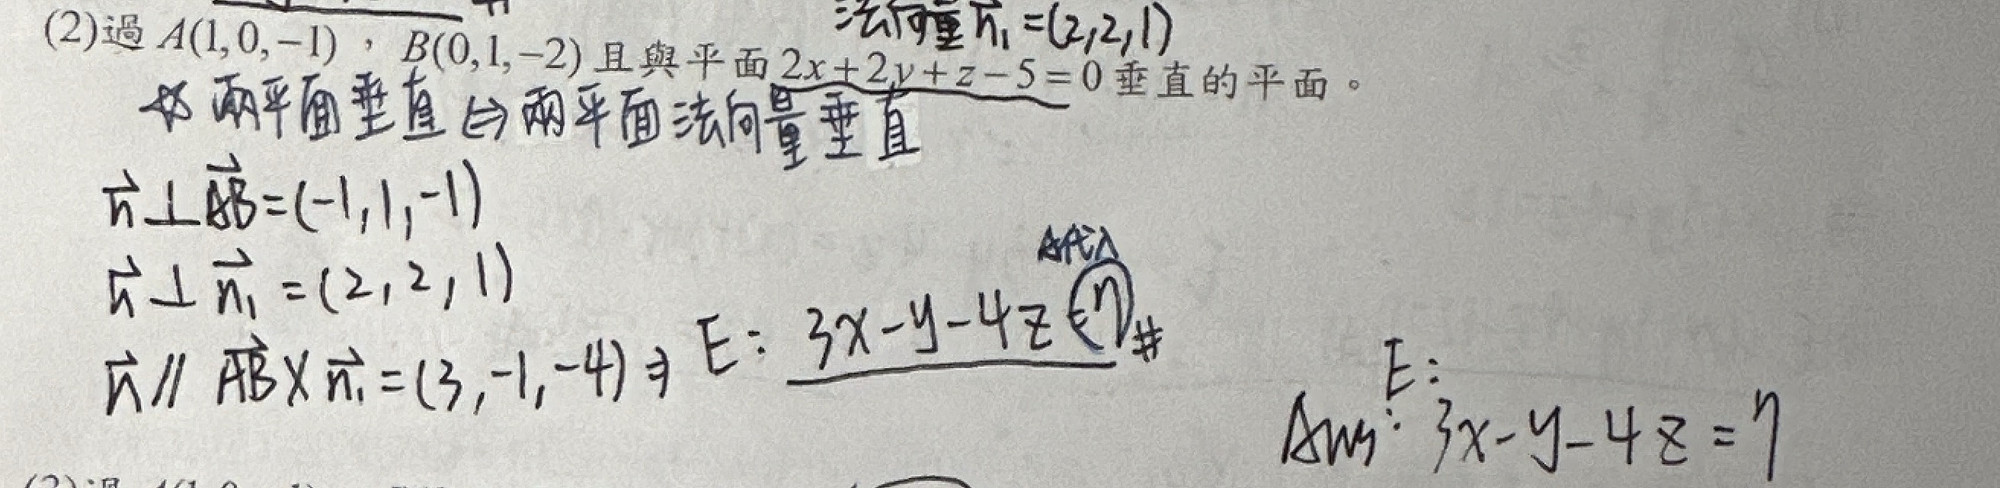 法向量 n₁⃗ = (2,2,1)
(2)過 A(1,0,−1),B(0,1,−2) 且與平面 2x+2y+z−5=0 垂直的平面。
兩平面垂直 ⇔ 兩平面法向量垂直
n⃗ ⊥ AB⃗ = (-1,1,-1)
n⃗ ⊥ n₁⃗ = (2,2,1)
A代入
n⃗ // AB⃗ × n₁⃗ = (3,-1,-4) ⇒ E: 3x-y-4z=7 #
E:
Ans: 3x-y-4z=7